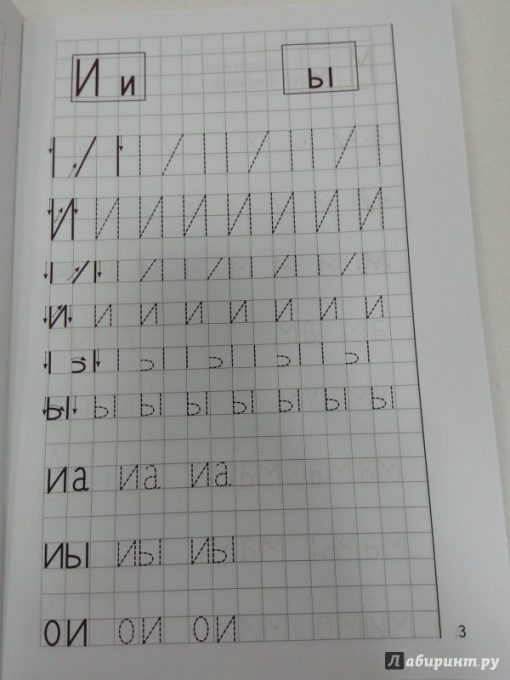 И и ы
И И И И И И И И
и и и и и и и и
ы ы ы ы ы ы ы ы
иа иа иа
иы иы иы
ои ои ои
3
Лабиринт.ру